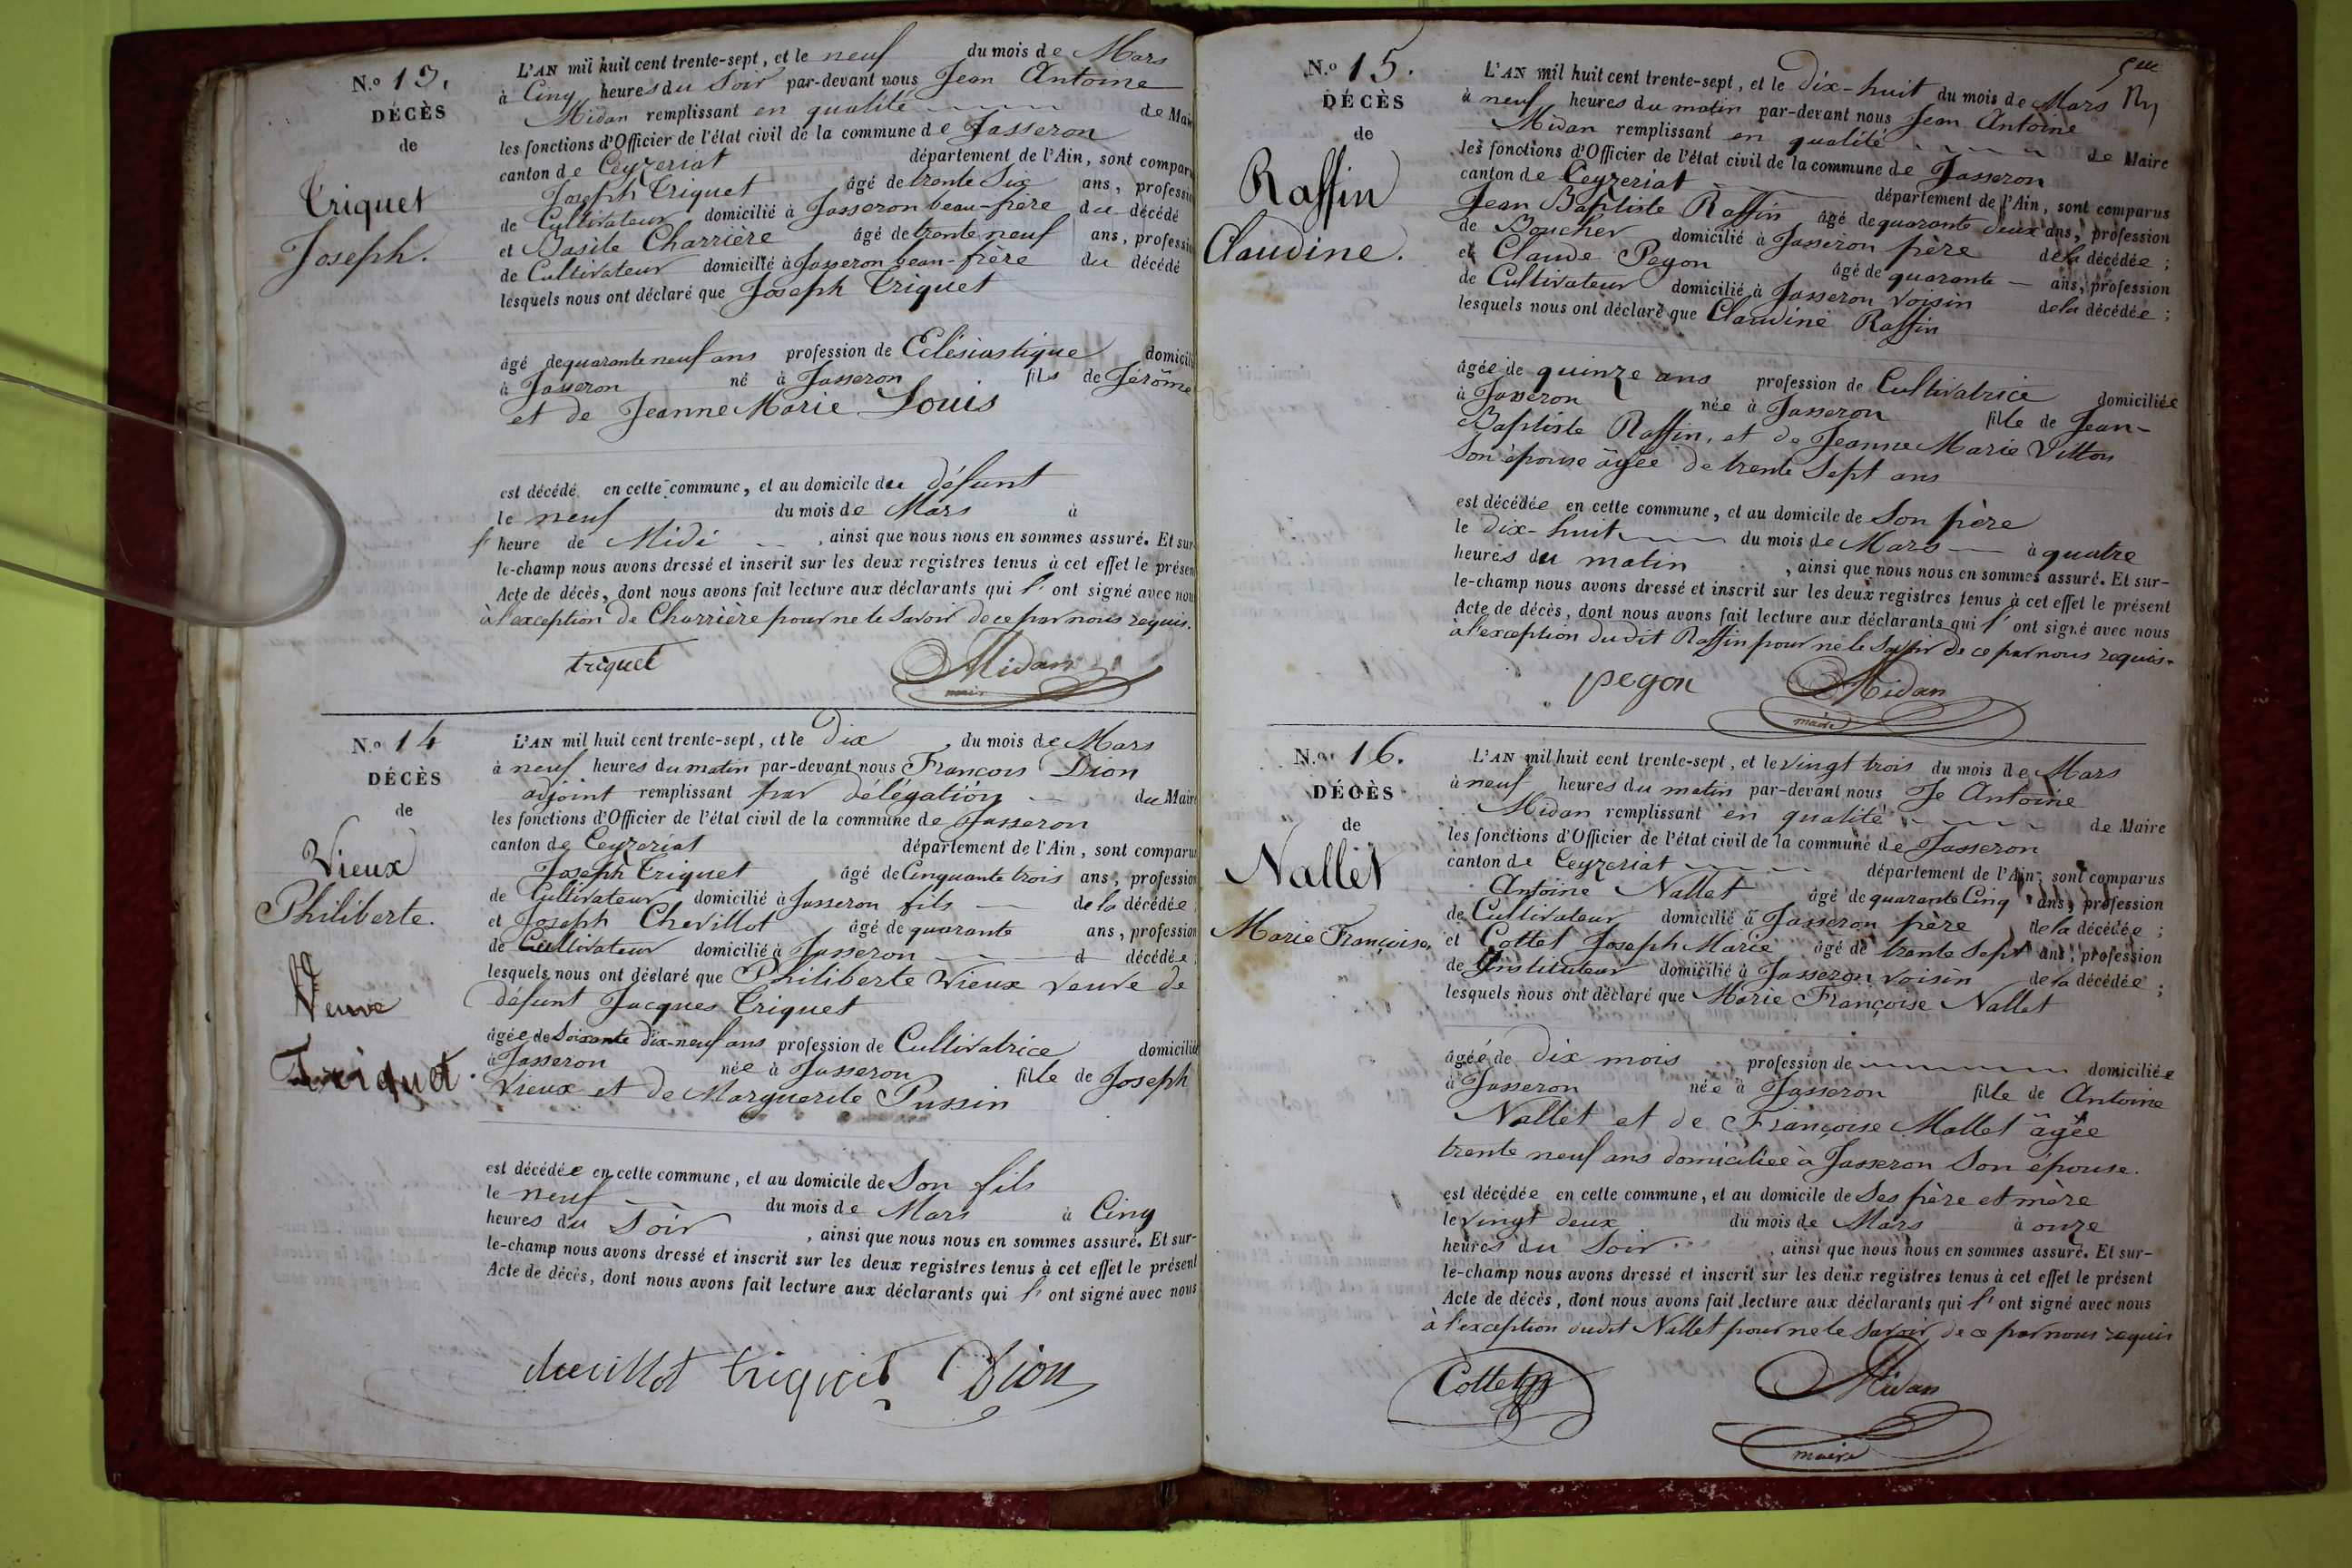 N.o 13.
DÉCÈS
de
Triquet
Joseph.
L'AN mil huit cent trente-sept, et le neuf du mois de Mars
à Cinq heures du Soir par-devant nous Jean Antoine
Midan remplissant en qualité de Mair
les fonctions d'Officier de l'état civil de la commune de Jasseron
canton de Ceyzeriat département de l'Ain, sont comparu
Joseph Triquet âgé de trente Six ans, professio
de Cultivateur domicilié à Jasseron beau-frère du décédé
et Basile Charrière âgé de trente neuf ans, professio
de Cultivateur domicilié à Jasseron beau-frère du décédé
lesquels nous ont déclaré que Joseph Triquet
âgé de quarante neuf ans profession de Eclésiastique domicili
à Jasseron né à Jasseron fils de Jérôme
et de Jeanne Marie Louis
est décédé en cette commune, et au domicile du défunt
le neuf du mois de Mars à
l' heure de Midi, ainsi que nous nous en sommes assuré. Et sur-
le-champ nous avons dressé et inscrit sur les deux registres tenus à cet effet le présen
Acte de décès, dont nous avons fait lecture aux déclarants qui l' ont signé avec nou
à l'exception de Charrière pour ne le Savoir de ce par nous requis.
triquet Midan
maire
N.o 14
DÉCÈS
de
Vieux
Philiberte.
Veuve
Triquet.
L'AN mil huit cent trente-sept, et le Dix du mois de Mars
à neuf heures du matin par-devant nous François Dion
adjoint remplissant par délégation du Mair
les fonctions d'Officier de l'état civil de la commune de Jasseron
canton de Ceyzeriat département de l'Ain, sont comparu
Joseph Triquet âgé de Cinquante trois ans, profession
de Cultivateur domicilié à Jasseron fils de la décédée
et Joseph Chevillot âgé de quarante ans, profession
de Cultivateur domicilié à Jasseron d décédée
lesquels nous ont déclaré que Philiberte Vieux veuve de
défunt Jacques Triquet
âgée de Soixante dix-neuf ans profession de Cultivatrice domicilié
à Jasseron née à Jasseron fille de Joseph
Vieux et de Marguerite Pussin
est décédée en cette commune, et au domicile de Son fils
le neuf du mois de Mars à Cinq
heures du Soir, ainsi que nous nous en sommes assuré. Et sur-
le-champ nous avons dressé et inscrit sur les deux registres tenus à cet effet le présent
Acte de décès, dont nous avons fait lecture aux déclarants qui l' ont signé avec nous
chevillot triquet Dion
N.o 15.
DÉCÈS
de
Raffin
Claudine.
L'AN mil huit cent trente-sept, et le Dix-huit du mois de Mars
à neuf heures du matin par-devant nous Jean Antoine
Midan remplissant en qualité de Maire
les fonctions d'Officier de l'état civil de la commune de Jasseron
canton de Ceyzeriat département de l'Ain, sont comparus
Jean Baptiste Raffin âgé de quarante deux ans, profession
de Boucher domicilié à Jasseron père de la décédée;
et Claude Pegon âgé de quarante ans, profession
de Cultivateur domicilié à Jasseron Voisin de la décédée;
lesquels nous ont déclaré que Claudine Raffin
âgée de quinze ans profession de Cultivatrice domiciliée
à Jasseron née à Jasseron fille de Jean-
Baptiste Raffin, et de Jeanne Marie Vitton
Son épouse âgée de trente Sept ans
est décédée en cette commune, et au domicile de Son père
le dix-huit du mois de Mars à quatre
heures du matin, ainsi que nous nous en sommes assuré. Et sur-
le-champ nous avons dressé et inscrit sur les deux registres tenus à cet effet le présent
Acte de décès, dont nous avons fait lecture aux déclarants qui l' ont signé avec nous
à l'exception dudit Raffin pour ne le Savoir de ce par nous requis.
pegon Midan
maire
N.o 16.
DÉCÈS
de
Nallet
Marie Françoise,
L'AN mil huit cent trente-sept, et le vingt trois du mois de Mars
à neuf heures du matin par-devant nous Je Antoine
Midan remplissant en qualité de Maire
les fonctions d'Officier de l'état civil de la commune de Jasseron
canton de Ceyzeriat département de l'Ain, sont comparus
Antoine Nallet âgé de quarante Cinq ans, profession
de Cultivateur domicilié à Jasseron père de la décédée;
et Cottet Joseph Marie âgé de trente Sept ans, profession
de Instituteur domicilié à Jasseron voisin de la décédée;
lesquels nous ont déclaré que Marie Françoise Nallet
âgée de dix mois profession de domiciliée
à Jasseron née à Jasseron fille de Antoine
Nallet et de Françoise Mallet âgée
trente neuf ans domiciliée à Jasseron Son épouse.
est décédée en cette commune, et au domicile de Ses père et mère
le vingt deux du mois de Mars à onze
heures du Soir, ainsi que nous nous en sommes assuré. Et sur-
le-champ nous avons dressé et inscrit sur les deux registres tenus à cet effet le présent
Acte de décès, dont nous avons fait lecture aux déclarants qui l' ont signé avec nous
à l'exception dudit Nallet pour ne le Savoir de ce par nous requis
Cottet Midan
maire